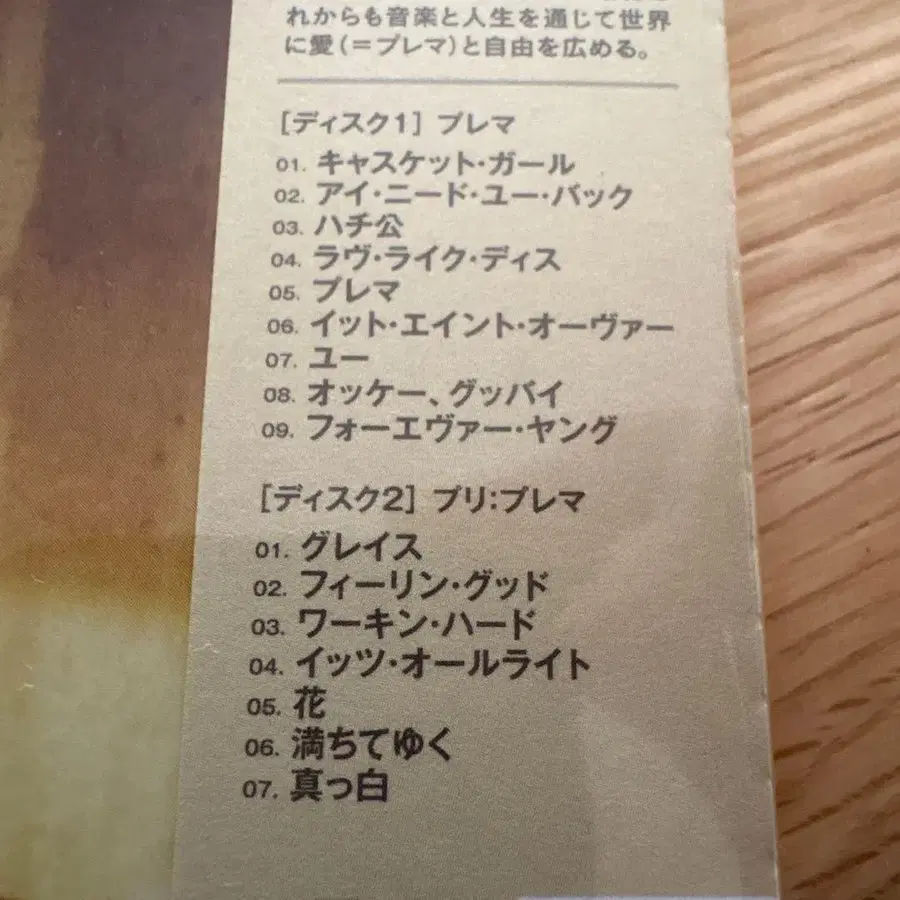 れからも音楽と人生を通じて世界
に愛(=プレマ)と自由を広める。
[ディスク1] プレマ
01. キャスケット・ガール
02. アイ・ニード・ユー・バック
03. ハチ公
04. ラヴ・ライク・ディス
05. プレマ
06. イット・エイント・オーヴァー
07. ユー
08. オッケー、グッバイ
09. フォーエヴァー・ヤング
[ディスク2] プリ:プレマ
01. グレイス
02. フィーリン・グッド
03. ワーキン・ハード
04. イッツ・オールライト
05. 花
06. 満ちてゆく
07. 真っ白